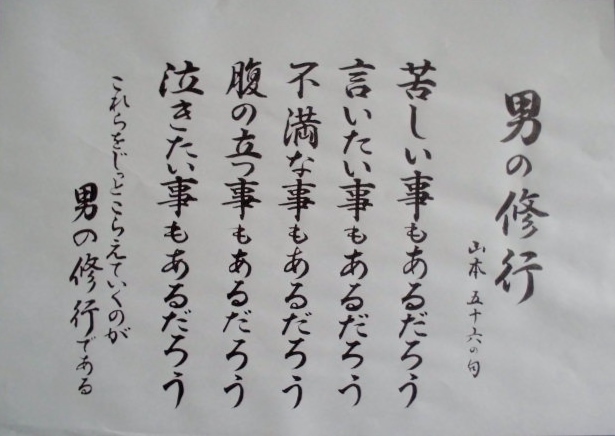 男の修行
山本 五十六の句
苦しい事もあるだろう
言いたい事もあるだろう
不満な事もあるだろう
腹の立つ事もあるだろう
泣きたい事もあるだろう
これらをじっとこらえていくのが
男の修行である